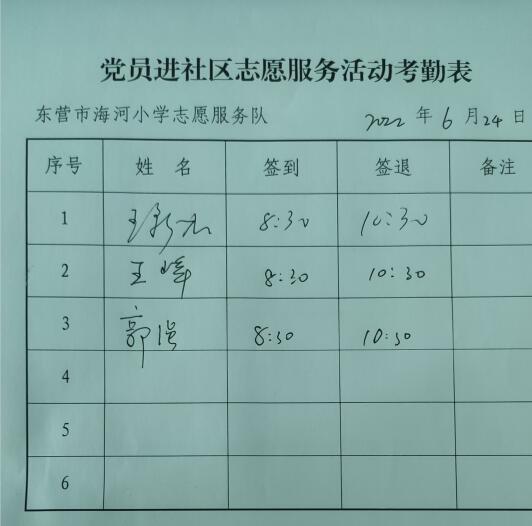 党员进社区志愿服务活动考勤表
东营市海河小学志愿服务队 2022 年 6 月 24 日
序号 姓 名 签到 签退 备注
1 王 8:30 10:30
2 王峰 8:30 10:30
3 郭强 8:30 10:30
4
5
6